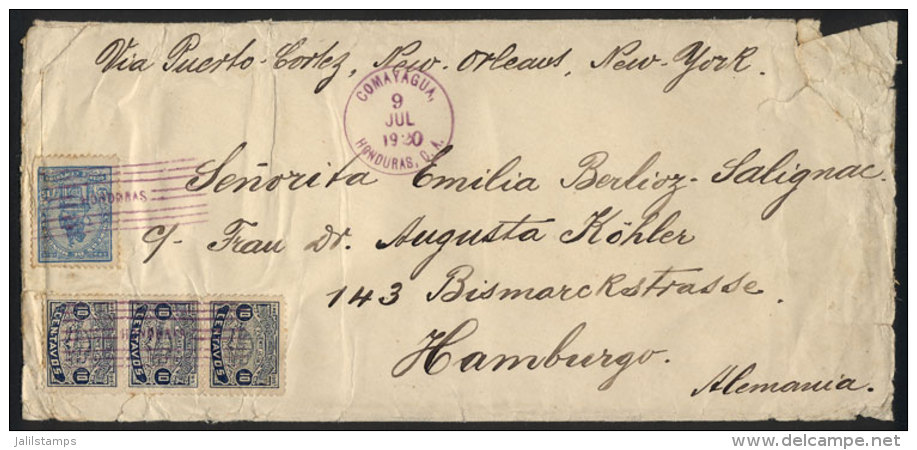 Via Puerto-Cortez, New-Orleans, New-York.
COMAYAGUA,
9
JUL
1920
HONDURAS, C. A.
HONDURAS
Señorita Emilia Berlioz-Salignac.
c/- Frau Dr. Augusta Köhler
143 Bismarckstrasse.
Hamburgo.
Alemania.
10 CENTAVOS 10
10 CENTAVOS 10
10 CENTAVOS 10
jalilstamps
www.delcampe.net